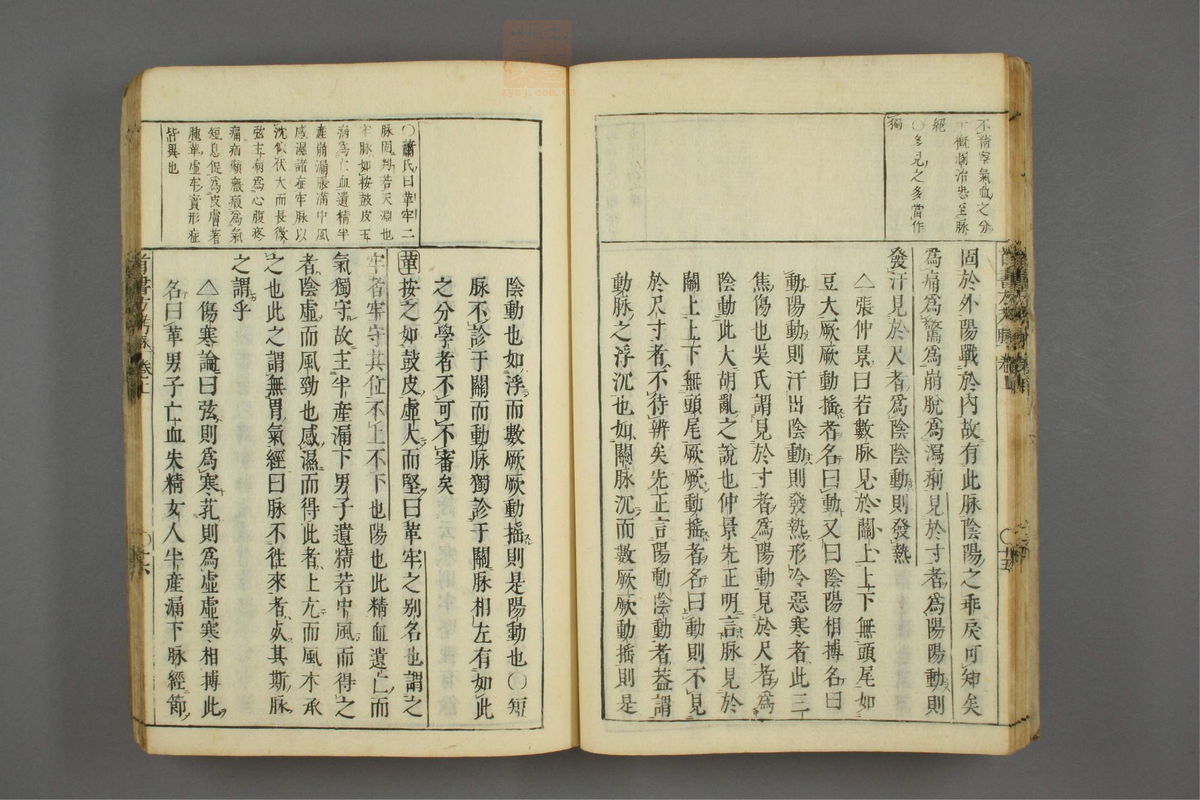 不論寒氣血之分
一概溷治恐至脉
絕
○多見之多當作
獨
固於外陽戰於内故有此脉陰陽之乖戾可知矣
爲痛爲驚爲崩脫爲瀉痢見於寸者爲陽陽動則
發汗見於尺者爲陰陰動則發熱
△張仲景曰若數脉見於關上上下無頭尾如
豆大厥厥動搖者名曰動又曰陰陽相搏名曰
動陽動則汗出陰動則發熱形冷惡寒者此三
焦傷也吳氏謂見於寸者爲陽動見於尺者爲
陰動此大胡亂之說也仲景先正明言脉見於
關上上下無頭尾厥厥動搖者名曰動則不見
於尺寸者不待辨矣先正言陽動陰動者葢謂
動脉之浮沉也如關脉沉而數厥厥動搖則是
○蕭氏曰革牢二
脉固判若天淵也
牢脉如按鼓皮五
病爲亡血遺精半
產崩漏脹滿中風
感濕諸症牢脉以
沈似伏大而長微
弦主病爲心腹疼
痛疝癩癥瘕爲氣
短息促爲皮膚著
腫革虛牢實形症
皆異也
陰動也如浮而數厥厥動搖則是陽動也○短
脉不診于關而動脉獨診于關脉相左有如此
之分學者不可不審矣
革按之如鼓皮虛大而堅曰革牢之别名也謂之
牢者牢守其位不上不下也陽也此精血遺亡而
氣獨守故主半產漏下男子遺精若中風而得之
者陰虛而風勁也感濕而得此者上亢而風木承
之也此之謂無胃氣經曰脉不徃來者死其斯脉
之謂乎
△傷寒論曰弦則爲寒芤則爲虛虛寒相搏此
名曰革男子亡血失精女人半產漏下脉經節